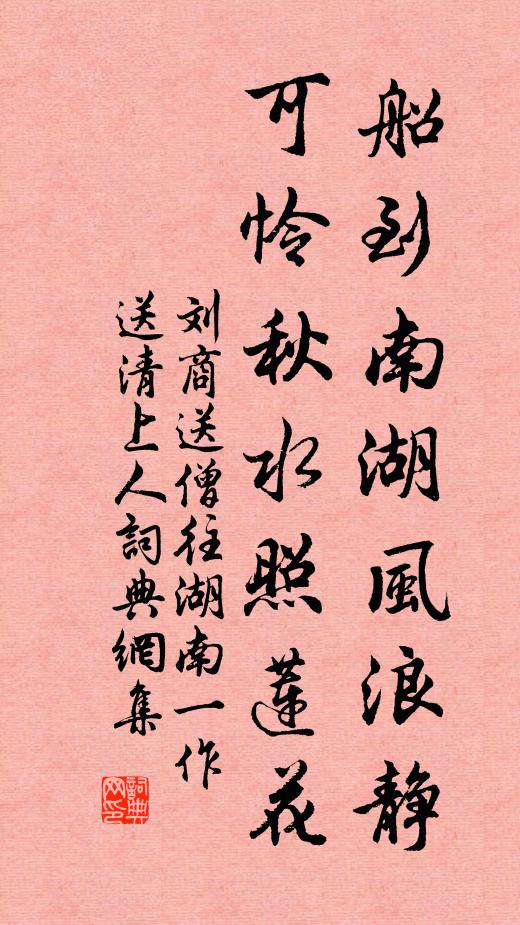 船到南湖風浪静
可怜秋水照蓮花
刘商送僧往湖南一作
送清上人詞典網集
詞典网印